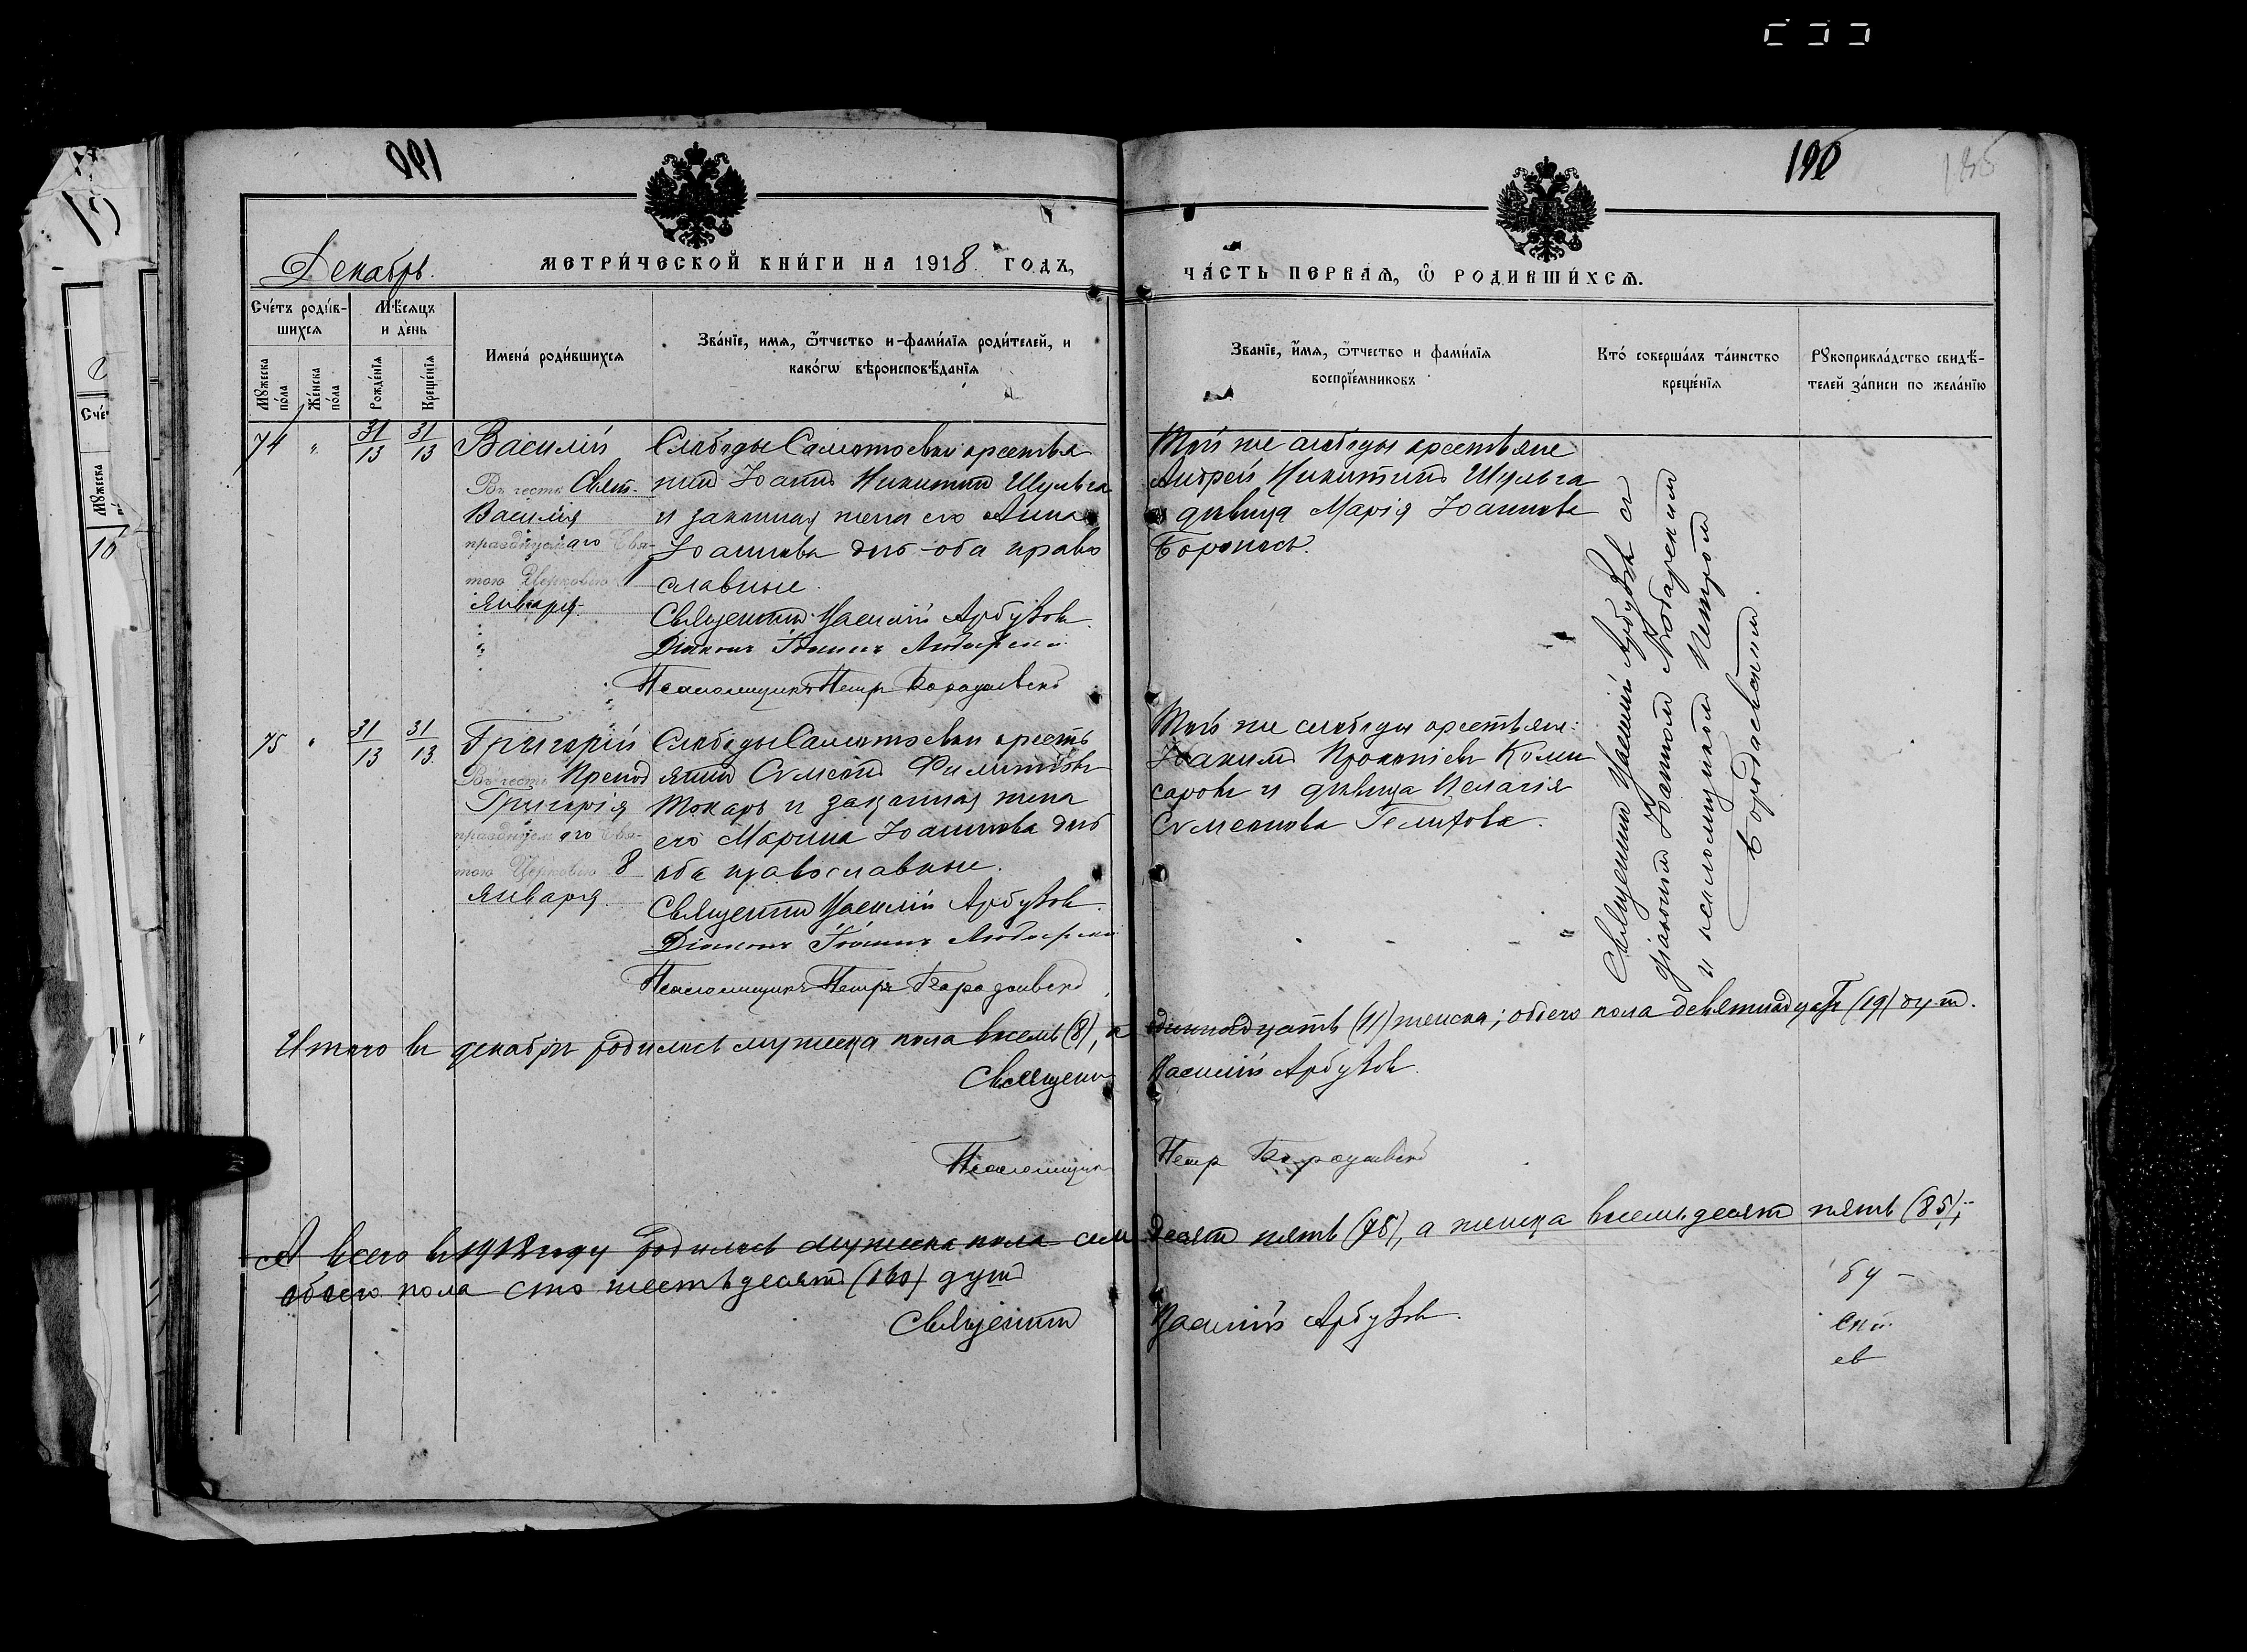 190
185
Декабрь.
МЕТРИ́ЧЕСКОЙ КНИ́ГИ НА 1918 ГОДЪ,
ЧА́СТЬ ПЕРВАѦ, Ѿ РОДИВШИ́ХСѦ.
Сче́тъ роди́в-
шихся
Мѣ́сяцъ
и де́нь
Имена́ роди́вшихся
Зва́нїе, имѧ, ѿтчество и фами́лїѧ роди́телей, и
како́гѡ вѣроисповѣ́данїѧ
Мꙋжеска
по́ла
Же́нска
по́ла
Рожде́нїѧ
Креще́нїѧ
Зва́нїе, и́мѧ, ѿтчество и фами́лїѧ
воспрїе́мниковъ
Кто̀ соверша́лъ та́инство
креще́нїѧ
Рꙋкоприкла́дство свидѣ́-
телей за́писи по жела́нїю
74 " 31/13 31/13 Василій
Въ честь Свят.
Василія
празднуемаго Свя-
тою Церковію 1
Января
Слободы Самотоевки крестья
нинъ Іоаннъ Никитинъ Шульга
и законная жена его Анна
Іоаннова оба право
славные.
Священникъ Василій Арбузовъ.
Діаконъ Іоаннъ Любарскій
Псаломщикъ Петръ Бородаевскій
Той же слободы крестьяне
Андрей Никитинъ Шульга
и дѣвица Марія Іоаннова
Священникъ Василій Арбузовъ съ
діакономъ Іоанномъ Любарскимъ
и псаломщикомъ Петромъ
Бородаевскимъ.
75 " 31/13 31/13 Григорій
Въ честь Препод
Григорія
празднуемаго Свя-
тою Церковію 8
Января.
Слободы Самотоевки кресть
янинъ Сѵмеонъ Филиповъ
Токарь и законная жена
его Марина Іоаннова
оба православные.
Священникъ Василій Арбузовъ.
Діаконъ Іоаннъ Любарскій
Псаломщикъ Петръ Бородаевскій
Той же слободы крестьяне:
Іоакимъ Прокопіевъ Комис
саровъ и дѣвица Пелагія
Сѵмеонова
Итого въ декабрѣ родилось мужеска пола восемь (8), а одиннадцать (11) женска; обоего пола девятнадцать (19) душъ.
Священникъ Василій Арбузовъ.
Псаломщикъ Петръ Бородаевскій
А всего въ 1918 году родилось мужеска пола семьдесятъ пять (75), а женска восемьдесятъ пять (85),
обоего пола сто шестьдесятъ (160) душъ
Священникъ Василій Арбузовъ.